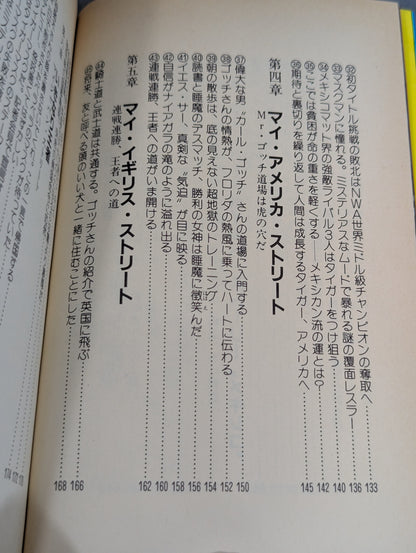 ㉜初タイトル挑戦の敗北はNWA世界ミドル級チャンピオンの奪取へ……133
㉝マスクマンに憧れる。ミステリアスなムードで暴れる謎の覆面レスラー……136
㉞メキシコマット界の強敵ライバル3人はタイガーをつけ狙う……140
㉟ここでは貧困が命の重さを軽くする──メキシカン流の運とは?……142
㊱期待と裏切りを繰り返して人間は成長するタイガー、アメリカへ……145
第四章 マイ・アメリカ・ストリート
Mr・ゴッチ道場は虎の穴だ
㊲偉大な男、"カール・ゴッチ"さんの道場に入門する……150
㊳ゴッチさんの情熱が、フロリダの熱風に乗ってハートに伝わる……152
㊴朝の散歩は、底の見えない超地獄のトレーニング……154
㊵読書と睡魔のデスマッチ、勝利の女神は睡魔に微笑んだ……156
㊶イエス・サー、真剣な"気迫"が目に映る……158
㊷自信がナイアガラの滝のように溢れ出る……160
㊸連戦連勝、王者への道がいま開ける……162
第五章 マイ・イギリス・ストリート
連戦連勝、王者への道
㊹騎士道と武士道は共通する。ゴッチさんの紹介で英国に飛ぶ……166
㊺将来、友と呼べる頭のいい犬と一緒に住むことにした……168